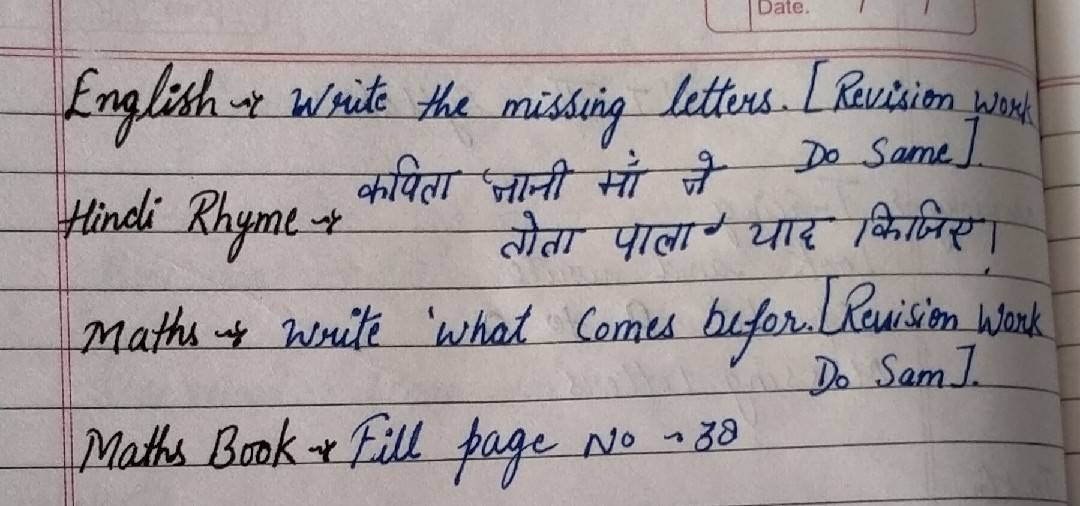 Date. / /
English → Write the missing letters. [Revision work
Do Same].
कविता 'नानी माँ ने
Hindi Rhyme →
तोता पाला' याद किजिए।
Maths → Write 'what Comes befor. [Revision Work
Do Sam].
Maths Book → Fill page No → 38